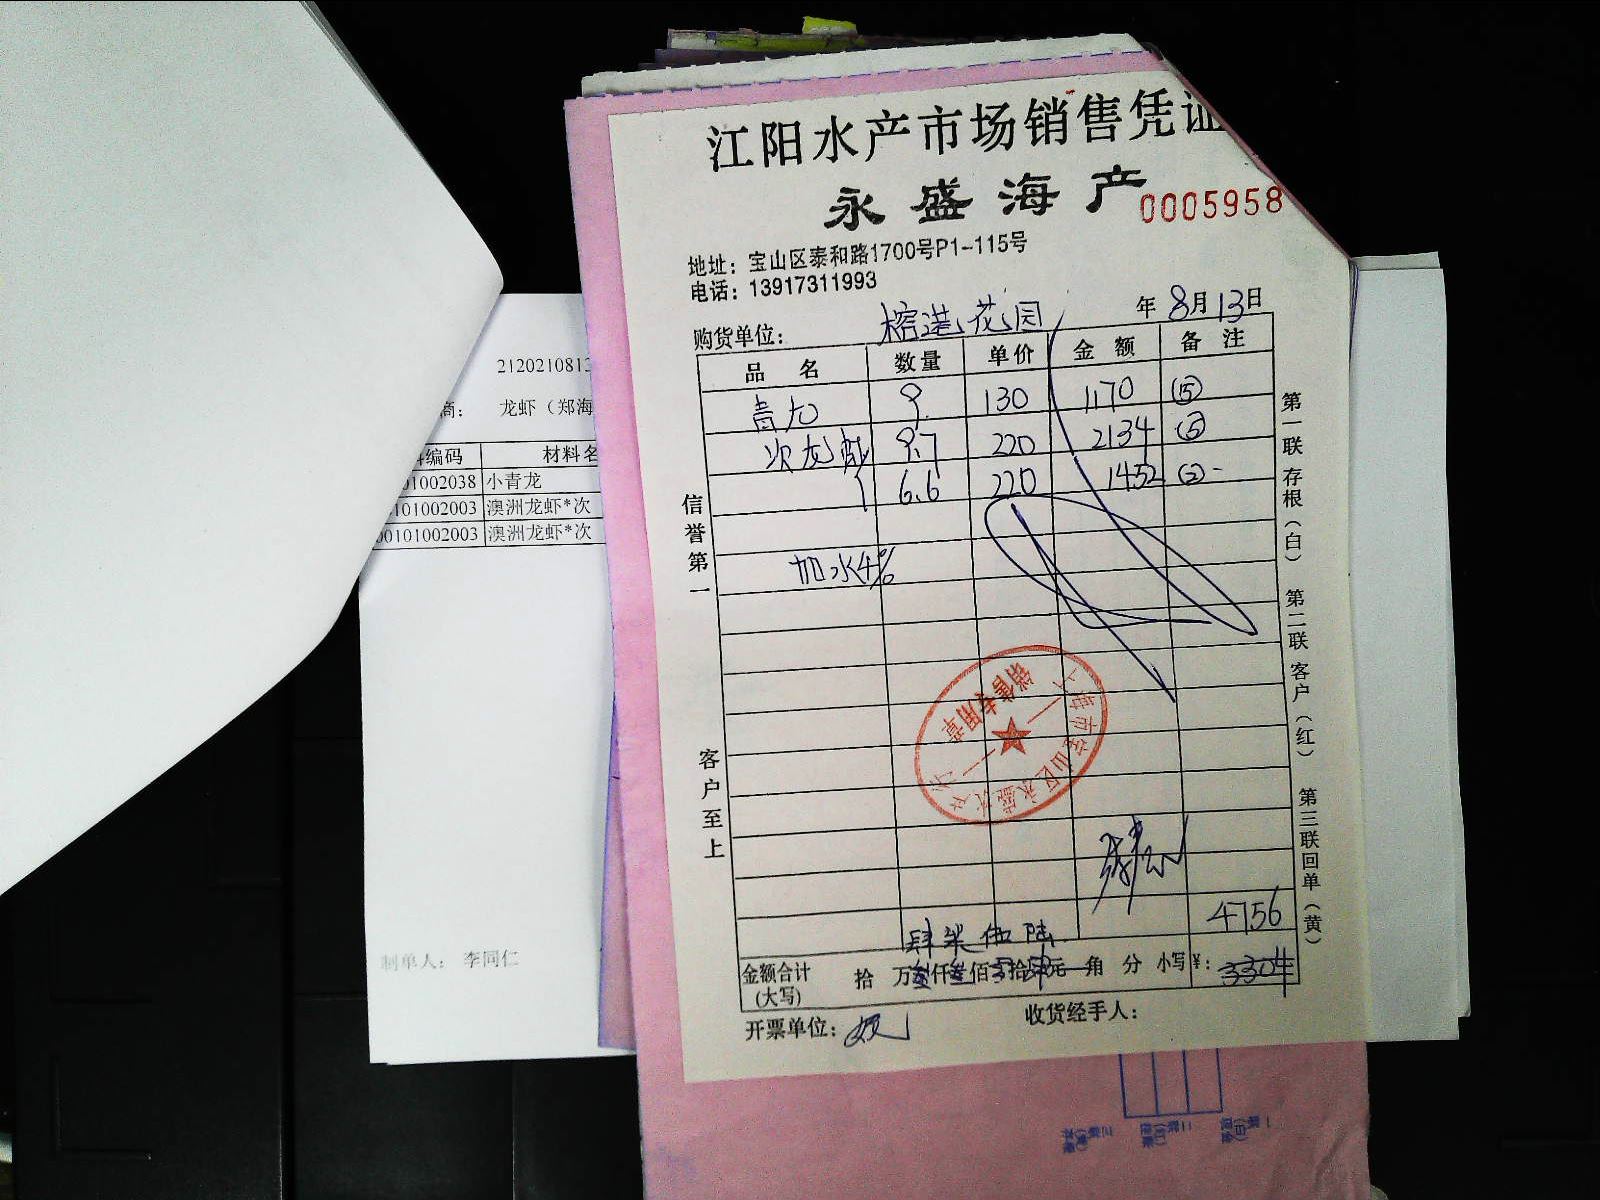 江阳水产市场销售凭证
永盛海产
0005958
地址：宝山区泰和路1700号P1-115号
电话：13917311993
购货单位： 榕港花园 年 8月13日
品 名 数量 单价 金 额 备 注
青龙 9. 130 1170 (15)
次龙虾 9.7 220 2134 (5)
6.6 220 1452 (2)-
加水4%
信誉第一
客户至上
第一联 存根（白） 第二联 客户（红） 第三联 回单（黄）
销售专用章
4756
肆柒伍陆
金额合计(大写) 拾 万 仟 佰 拾 元 角 分 小写¥： 3304
开票单位：
收货经手人：
212021081
商： 龙虾（郑海
编码 材料名
01002038 小青龙
101002003 澳洲龙虾*次
00101002003 澳洲龙虾*次
制单人： 李同仁